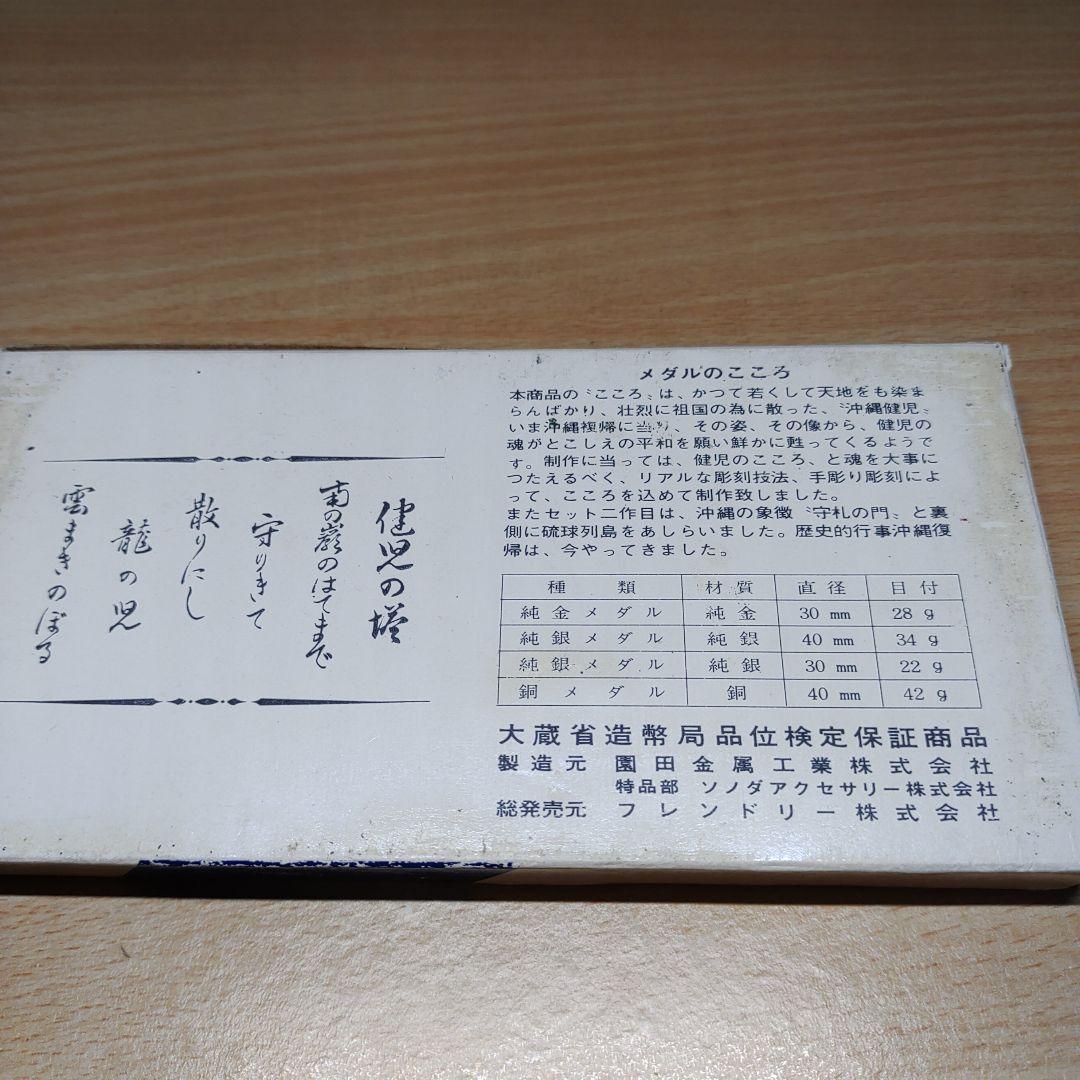 メダルのこころ
本商品の〝こころ〟は、かつて若くして天地をも染ま
らんばかり、壮烈に祖国の為に散った、〝沖縄健児〟
いま沖縄複帰に当り、その姿、その像から、健児の
魂がとこしえの平和を願い鮮かに甦ってくるようで
す。制作に当っては、健児のこころ、と魂を大事に
つたえるべく、リアルな彫刻技法、手彫り彫刻によ
って、こころを込めて制作致しました。
またセット二作目は、沖縄の象徴〝守札の門〟と裏
側に琉球列島をあしらいました。歴史的行事沖縄復
帰は、今やってきました。
種類 材質 直径 目付
純金メダル 純金 30 mm 28 g
純銀メダル 純銀 40 mm 34 g
純銀メダル 純銀 30 mm 22 g
銅メダル 銅 40 mm 42 g
大蔵省造幣局品位検定保証商品
製造元 園田金属工業株式会社
特品部 ソノダアクセサリー株式会社
総発売元 フレンドリー株式会社
健児の塔
南の巌のはてまで
守りきて
散りにし
龍の児
雲まきのぼる